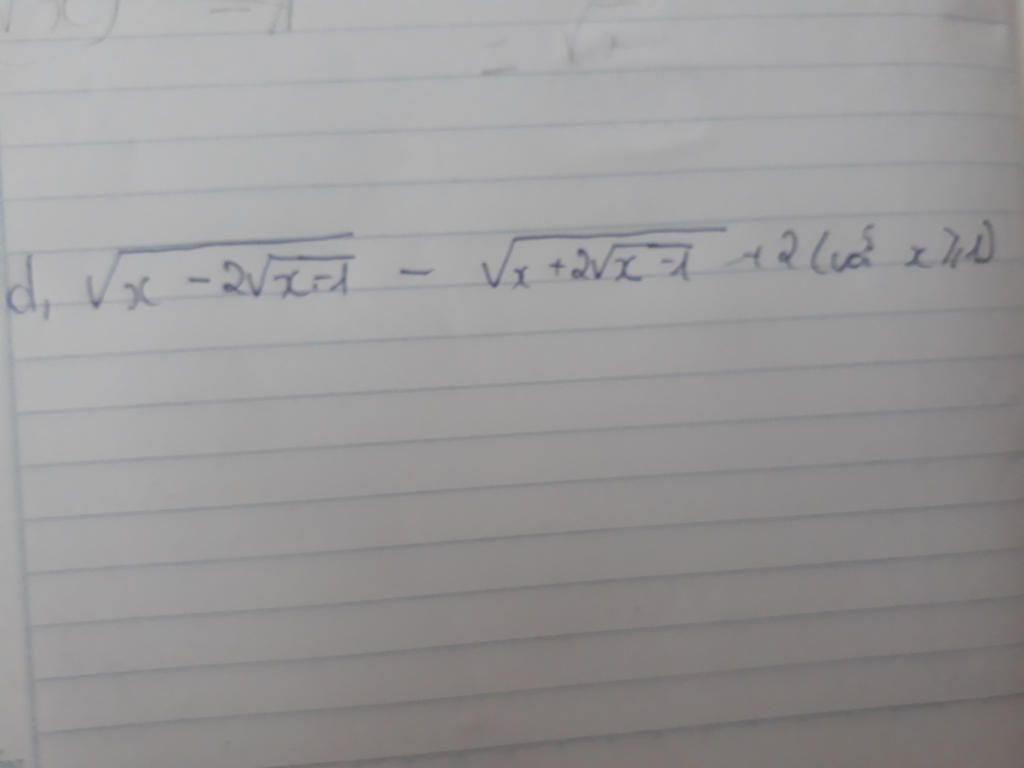 d, √(x - 2√(x-1)) - √(x + 2√(x-1)) + 2 (với x ≥ 1)